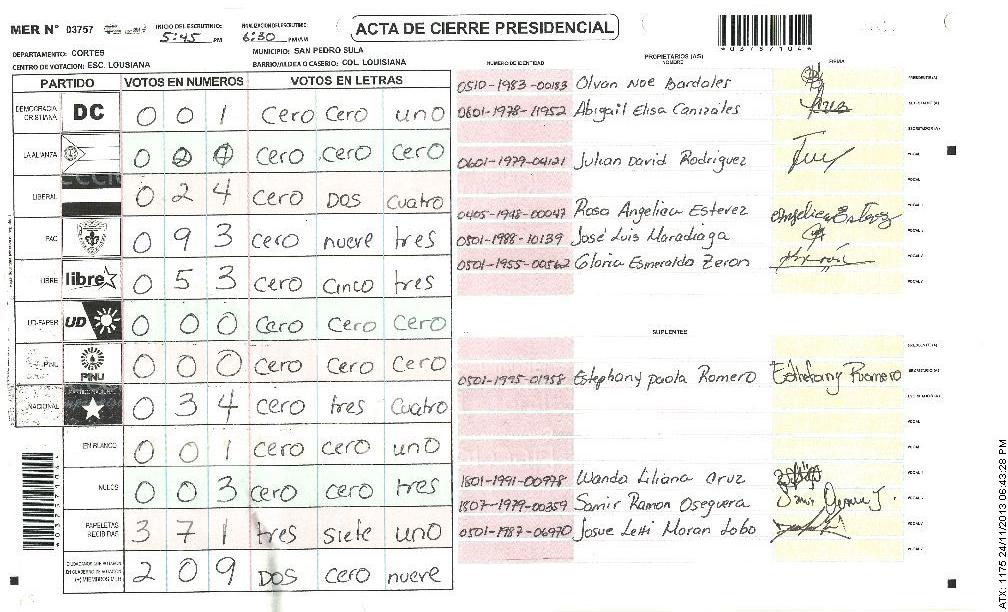 MER Nº 03757
INICIO DEL ESCRUTINIO: 5:45 PM
FINALIZACION DEL ESCRUTINIO: 6:30 PM/AM
ACTA DE CIERRE PRESIDENCIAL
DEPARTAMENTO: CORTES
MUNICIPIO: SAN PEDRO SULA
CENTRO DE VOTACION: ESC. LOUSIANA
BARRIO/ALDEA O CASERIO: COL. LOUISIANA
PARTIDO VOTOS EN NUMEROS VOTOS EN LETRAS
DEMOCRACIA CRISTIANA DC 0 0 1 Cero Cero uno
LA ALIANZA 0 0 0 cero cero cero
LIBERAL 0 2 4 cero Dos cuatro
PAC 0 9 3 cero nueve tres
LIBRE libre 0 5 3 cero Cinco tres
UD-FAPER UD 0 0 0 Cero Cero Cero
PINU PINU 0 0 0 cero Cero Cero
NACIONAL 0 3 4 cero tres Cuatro
EN BLANCO 0 0 1 cero cero uno
NULOS 0 0 3 cero cero tres
PAPELETAS RECIBIDAS 3 7 1 tres siete uno
2 0 9 DOS cero nueve
PROPIETARIOS (AS)
NUMERO DE IDENTIDAD NOMBRE FIRMA
0510-1983-00183 Olvan Noe Bardales PRESIDENTE (A)
0801-1978-11952 Abigail Elisa Canizales SECRETARIO (A)
ESCRUTADOR (A)
0601-1979-04121 Julian David Rodriguez VOCAL
VOCAL
0405-1948-00047 Rosa Angelica Estevez
0501-1988-10139 José Luis Maradiaga
0501-1955-00562 Gloria Esmeralda Zeron
SUPLENTES
PRESIDENTE (A)
0501-1995-01958 Estephany paola Romero Esthefany Romero SECRETARIO (A)
ESCRUTADOR (A)
VOCAL
VOCAL
1801-1991-00978 Wanda Liliana Cruz
1807-1979-00359 Samir Ramon Oseguera
0501-1987-06970 Josue Letti Moran Lobo
ATX: 1175 24/11/2013 06:43:28 PM